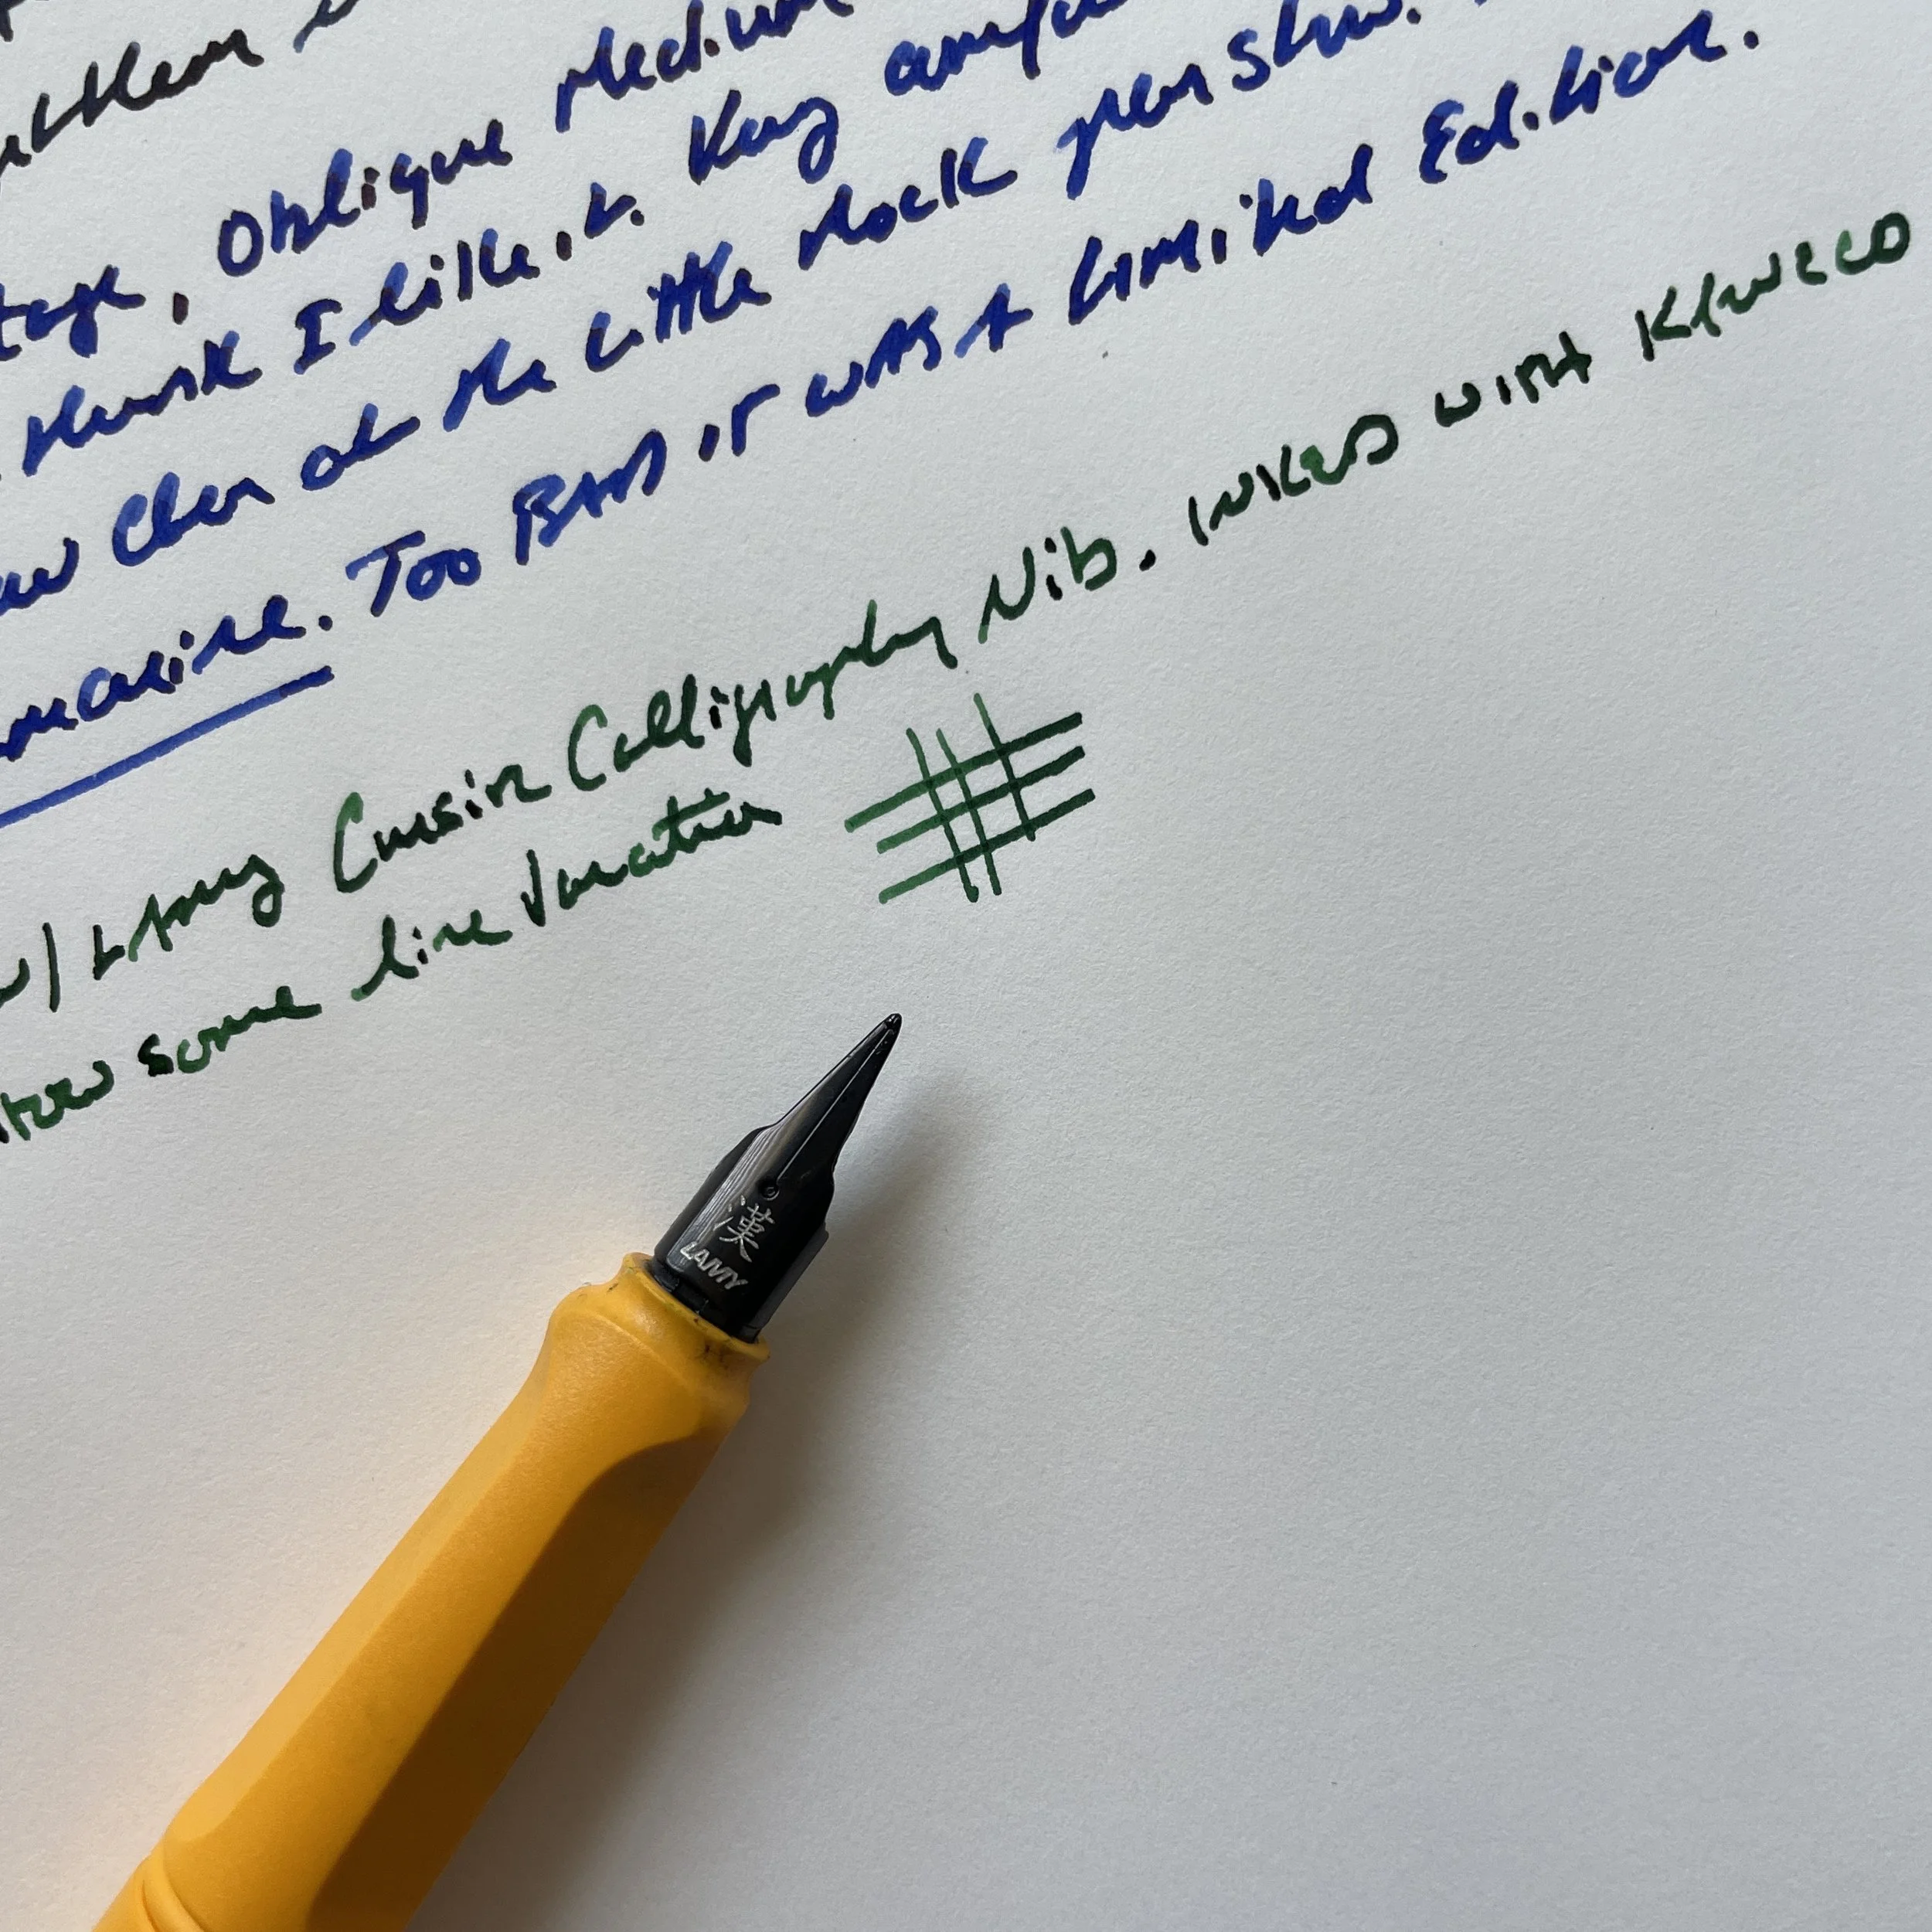 Oblique Medium
think I like it. Very comfo
at the Little Rock pen show.
marine. Too BAD IT WAS A Limited Edition.
w/ LAmy Cursive Calligraphy Nib. INKED WITH KAWECO
some line variation
漢
LAMY